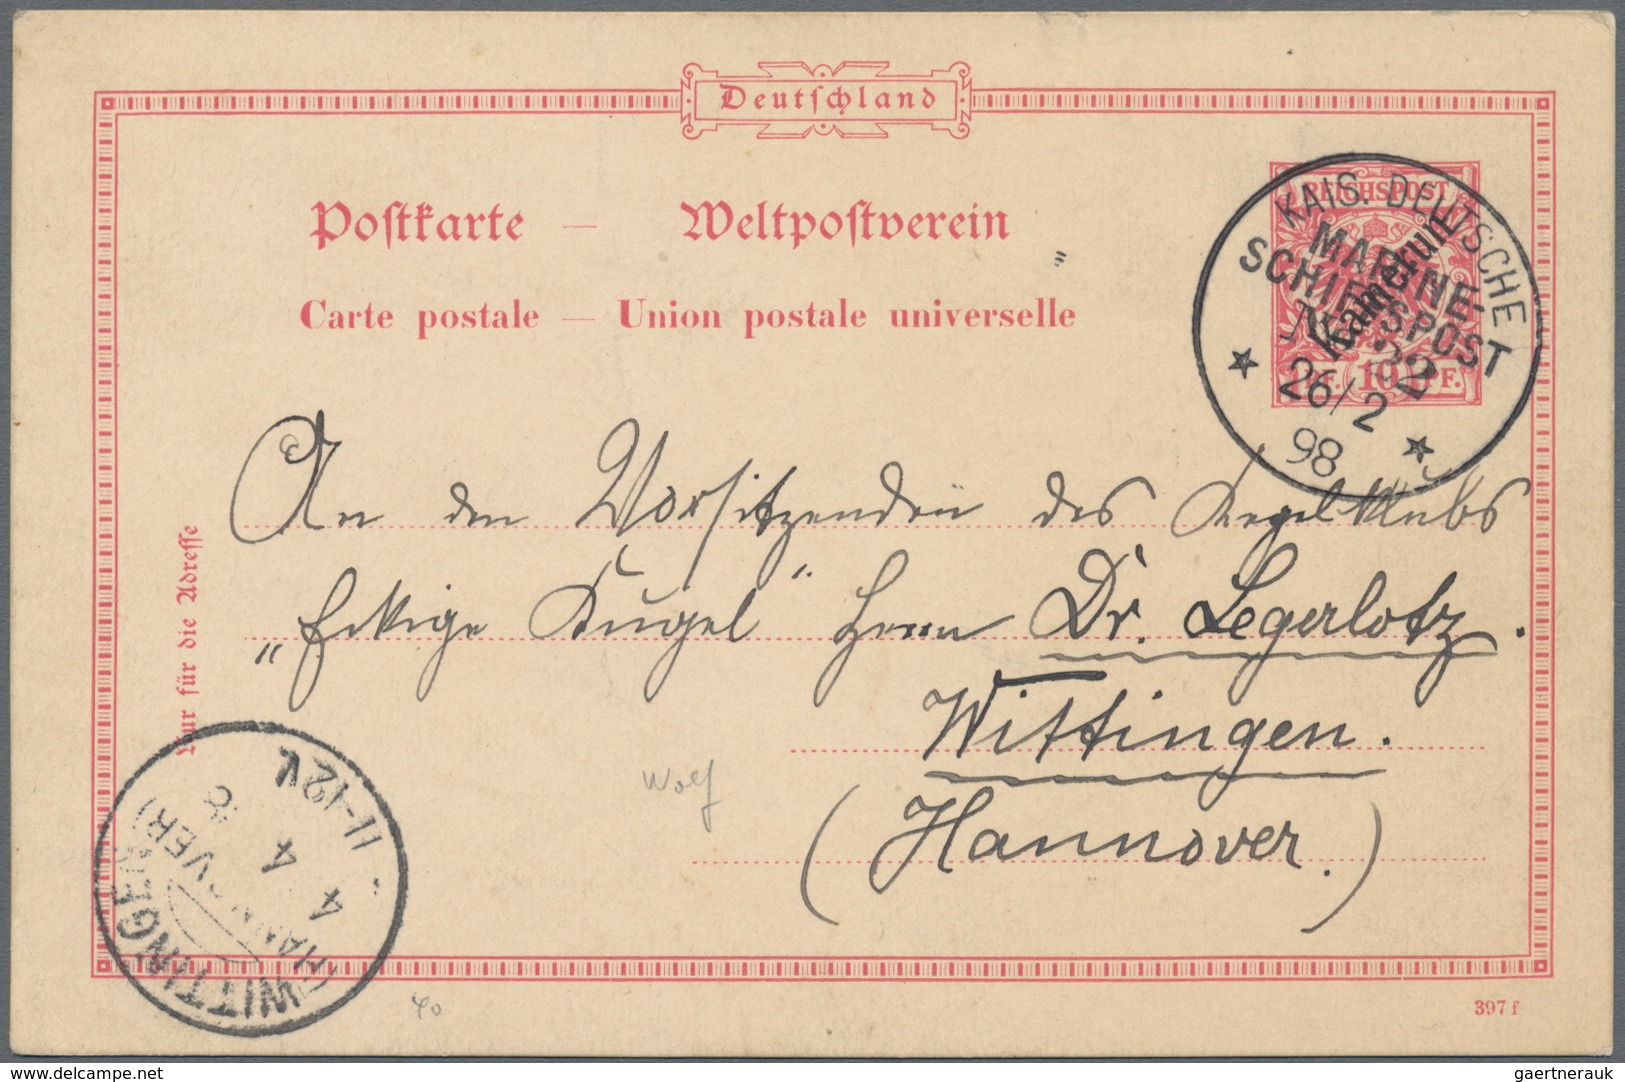 Deutschland
Postkarte — Weltpostverein
Carte postale — Union postale universelle
REICHSPOST
Kamerun
10 PF.
KAIS. DEUTSCHE
MARINE-
SCHIFFSPOST
No 32
26/2
98
An den Vorsitzenden des Kegelklubs
„Eckige Kugel" Herrn Dr. Legerlotz.
Wittingen.
(Hannover.)
Nur für die Adresse
WITTINGEN
(HANNOVER)
4 4
11-12V.
Wolf
397 f
delcampe.net
gaertnerauk